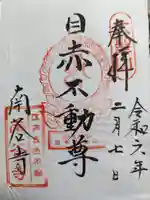 奉拝
令和六年
二月七日
目赤不動尊
南谷寺